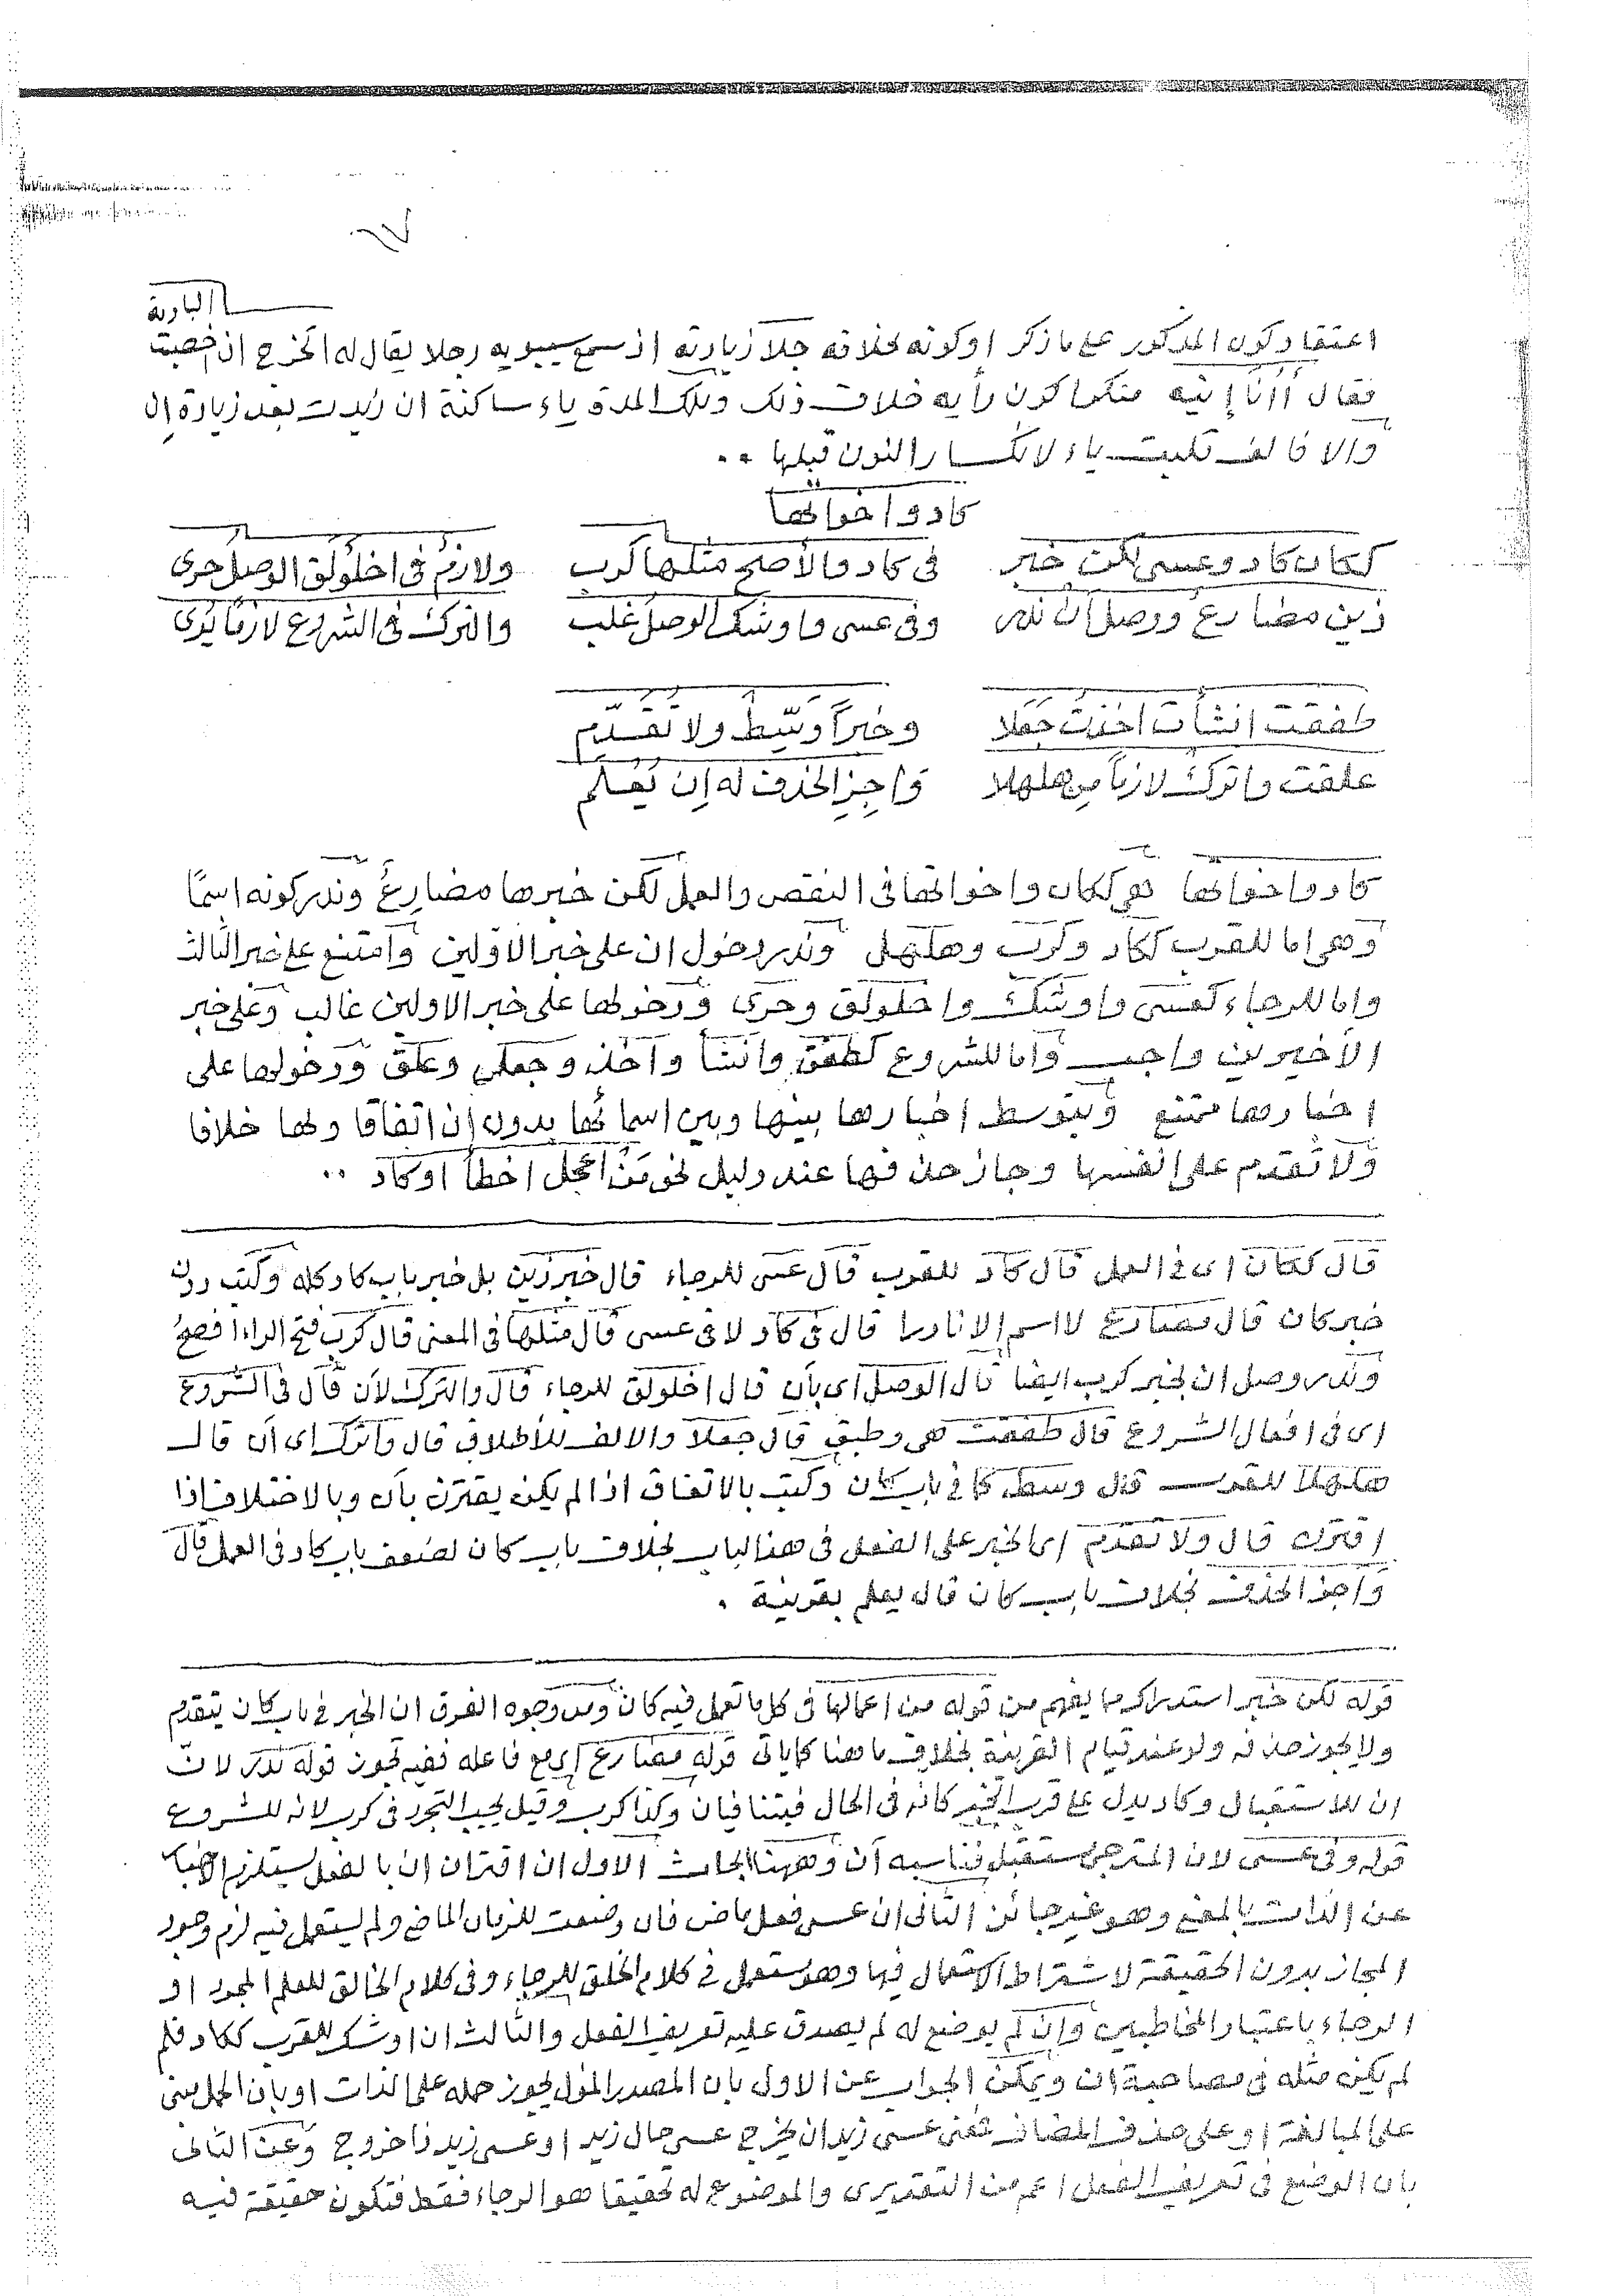 ٦٧
البادية
اعتقاد كون المذكور على ما ذكر او كونه بخلافه جلا زيادته اذ سمع سيبويه رجلا يقال له اتخرج ان اخصبت
فقال أأنا إنيه منكرا كون رأيه خلاف ذلك وتلك المدة ياء ساكنة ان زيدت بعد زيادة إن
والا فالف قلبت ياء لانكسار النون قبلها ..
كاد واخواتها
ككان كاد وعسى لكن خبر    فى كاد والأصح مثلها كرب    ولازم فى اخلولق الوصل حرى
زين مضارع ووصل أن ندر    وفى عسى واوشك الوصل غلب    والترك فى الشروع لازما يُرى
طفقت انشأت اخذت جعلا    وخبراً وسّط ولا تُقَدّم
علقت واترك لازماً من هلهلا    وأجِزِ الحذف له إن يُعلم
كاد واخواتها هى ككان واخواتها فى النقص والعمل لكن خبرها مضارعُ وندر كونه اسمًا
وهى اما للقرب ككاد وكرب وهلهل وندر دخول ان على خبر الاولين وامتنع على خبر الثالث
واما للرجاء كعسى واوشك واخلولق وحرى ودخولها على خبر الاولين غالب وعلى خبر
الأخيرين واجب واما للشروع كطفق وانشأ وأخذ وجعل وعلق ودخولها على
اخبارها ممتنع ويتوسط اخبارها بينها وبين اسمائها بدون ان اتفاقا ولها خلافا
ولا تُقدم على انفسها وجاز حذفها عند دليل نحو مَنْ اعجل اخطأ او كاد ..
قال ككان اى فى العمل قال كاد للقرب قال عسى للرجاء قال خبر زين بل خبر باب كاد كله وكتب دون
خبر كان قال مضارع لا اسم الا نادرا قال فى كاد لا فى عسى قال مثلها فى المعنى قال كرب فتح الراء افصحُ
وندر وصل ان بخبر كرب ايضا قال الوصل اى بأن قال اخلولق للرجاء قال والترك لأن قال فى الشروع
اى فى افعال الشروع قال طفقت هى وطبق قال جعلا والالف للأطلاق قال واترك اى أن قال
هلهلا للقرب قال وسط كما فى باب كان وكتب بالاتفاق اذا لم يكن يقترن بأن وبالاختلاف إذا
إقترن قال ولا تقدم اى الخبر على الفعل فى هذا الباب بخلاف باب كان لضعف باب كاد فى العمل قال
وأجز الحذف بخلاف باب كان قال يعلم بقرينة .
قوله لكن خبر استدراك مما يفهم من قوله من اعمالها فى كل ما تعمل فيه كان ومن وجوه الفرق ان الخبر فى باب كان يتقدم
ولا يجوز حذفه ولو عند قيام القرينة بخلاف ما هنا كما يأتى قوله مضارع اى مع فاعله ففيه تجوز قوله ندر لانّ
ان للاستقبال وكاد يدل على قرب الخبر كانه فى الحال فيتنافيان وكذا كرب وقيل يجب التجرد فى كرب لانه للشروع
قوله وفى عسى لان المترجى مستقبل فناسبه أن وههنا ابحاث الاول ان اقتران ان بالفعل يستلزم الاخبار
عن الذات بالمعنى وهو غير جائز الثانى ان عسى فعل ماض فان وضعت للزمان الماضى ولم يستعمل فيه لزم وجود
المجاز بدون الحقيقة لاشتراط الاستعمال فيها وهو مستعمل فى كلام الخلق للرجاء وفى كلام الخالق للعلم المجرد او
الرجاء باعتبار المخاطبين وان لم يوضع له لم يصدق عليه تعريف الفعل والثالث ان اوشك للقرب ككاد فلم
لم يكن مثله فى مصاحبة ان ويمكن الجواب عن الاول بان المصدر المؤل يجوز حمله على الذات او بان الحمل مبنى
على المبالغة او على حذف المضاف فمعنى عسى زيد ان يخرج عسى حال زيد او عسى زيد ذا خروج وعن الثانى
بان الوضع فى تعريف الفعل اعم من التقديرى والموضوع له تحقيقا هو الرجاء فقط فتكون حقيقة فيه